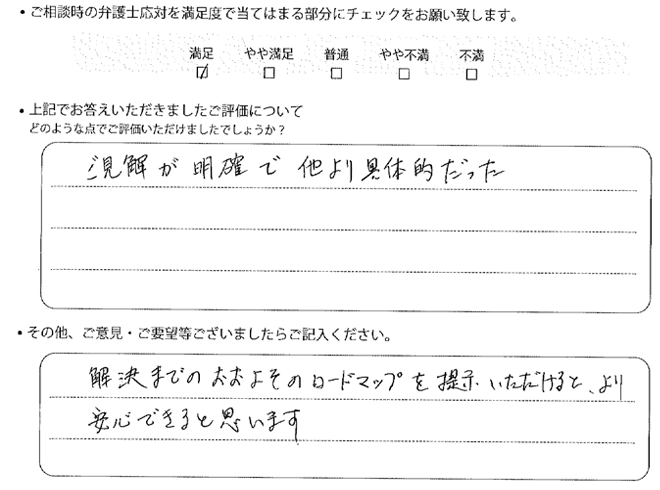 ・ご相談時の弁護士応対を満足度で当てはまる部分にチェックをお願い致します。
満足 やや満足 普通 やや不満 不満
・上記でお答えいただきましたご評価について
どのような点でご評価いただけましたでしょうか？
ご見解が明確で他より具体的だった
・その他、ご意見・ご要望等ございましたらご記入ください。
解決までのおおよそのロードマップを提示いただけると、より
安心できると思います